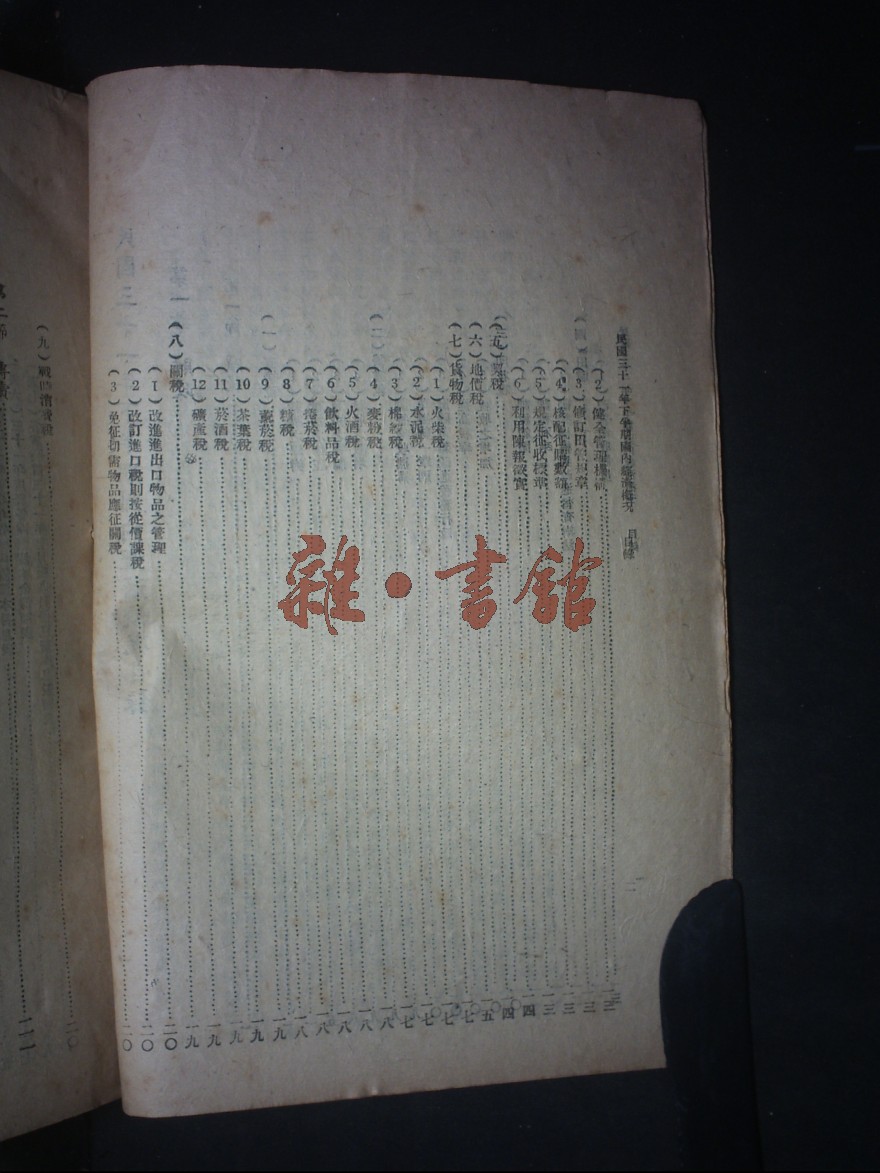 民國三十一年下半期國內經濟概況 目錄
(2)健全管理機構……一三
(3)修訂田管規章……一三
(4)核配征購數額……一三
(5)規定征收標準……一三
(6)利用陳報……一四
(五)契稅……一四
(六)地價稅……一五
(七)貨物稅……一七
(1)火柴稅……一七
(2)水泥稅……一七
(3)棉紗稅……一七
(4)麥粉稅……一八
(5)火酒稅……一八
(6)飲料品稅……一八
(7)捲菸稅……一八
(8)糖稅……一八
(9)薰菸稅……一九
(10)茶葉稅……一九
(11)菸酒稅……一九
(12)礦產稅……一九
(八)關稅……一九
(1)改進進出口物品之管理……二〇
(2)改訂進口稅則按從價課稅……二〇
(3)免征切需物品應征關稅……二〇
二
(九)戰時消費稅……二〇
雜·書館